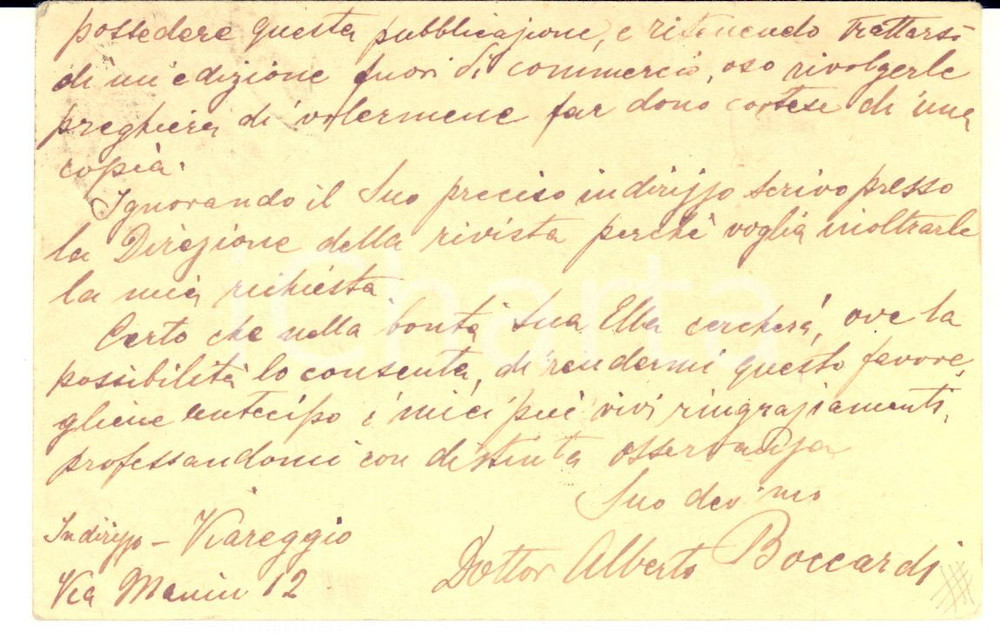 possedere questa pubblicazione, e ritenendo trattarsi
di un'edizione fuori di commercio, oso rivolgerle
preghiera di volermene far dono cortese di una
copia.
Ignorando il Suo preciso indirizzo scrivo presso
la Direzione della rivista perchè voglia inoltrarle
la mia richiesta
Certo che nella bontà Sua Ella cercherà, ove la
possibilità lo consenta, di rendermi questo favore,
gliene antecipo i miei più vivi ringraziamenti,
professandomi con distinta osservanza
Suo dev mo
Dottor Alberto Boccardi
Indirizzo – Viareggio
Via Manin 12
iCharta